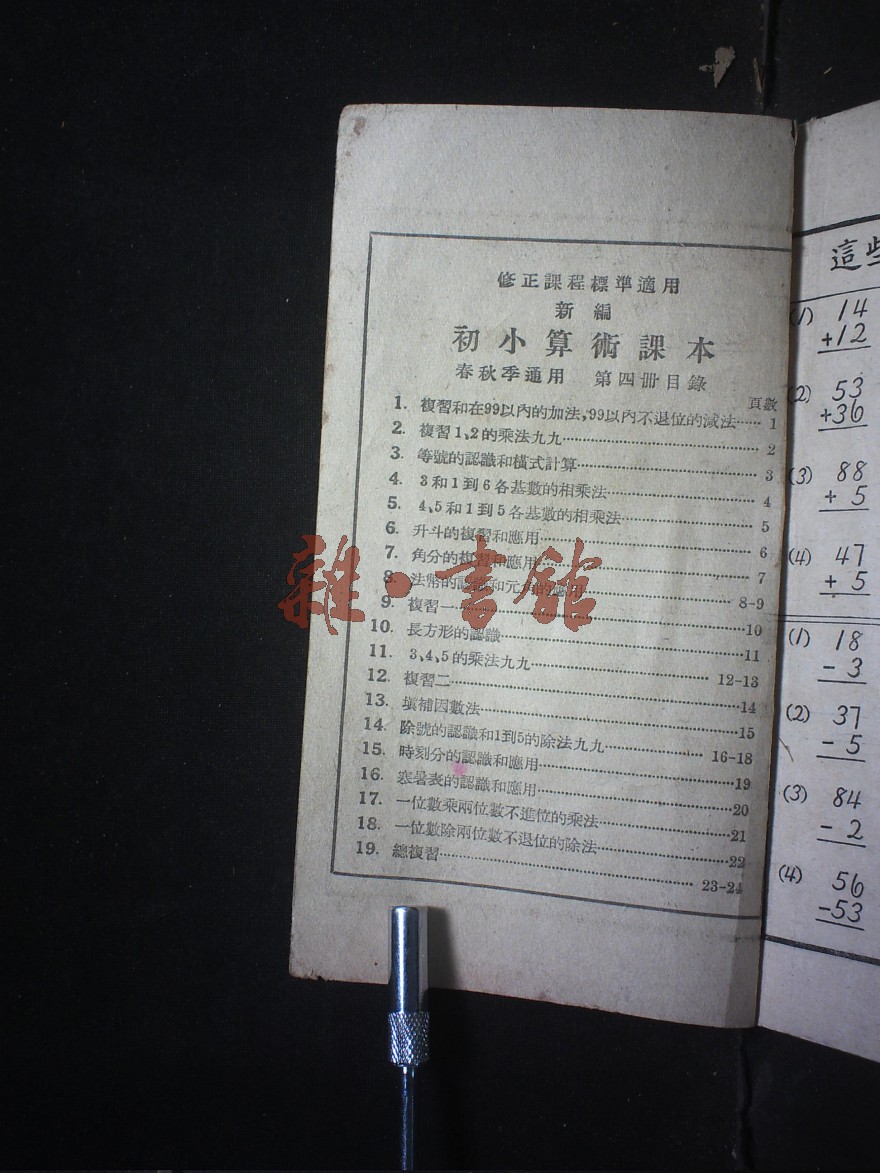 修正課程標準適用
新編
初小算術課本
春秋季通用 第四冊目錄
頁數
1. 複習和在99以內的加法,99以內不退位的減法…… 1
2. 複習1、2的乘法九九…… 2
3. 等號的認識和橫式計算…… 3
4. 3和1到6各基數的相乘法…… 4
5. 4、5和1到5各基數的相乘法…… 5
6. 升斗的複習和應用…… 6
7. 角分的複習和應用…… 7
8. 法幣的認識和元角的應用…… 8-9
9. 複習一……10
10. 長方形的認識……11
11. 3、4、5的乘法九九…… 12-13
12. 複習二……14
13. 塡補因數法……15
14. 除號的認識和1到5的除法九九…… 16-18
15. 時刻分的認識和應用……19
16. 寒暑表的認識和應用……20
17. 一位數乘兩位數不進位的乘法……21
18. 一位數除兩位數不退位的除法……22
19. 總複習…… 23-24
雜·書館
這些
(1) 14
+12
(2) 53
+36
(3) 88
+ 5
(4) 47
+ 5
(1) 18
- 3
(2) 37
- 5
(3) 84
- 2
(4) 56
-53